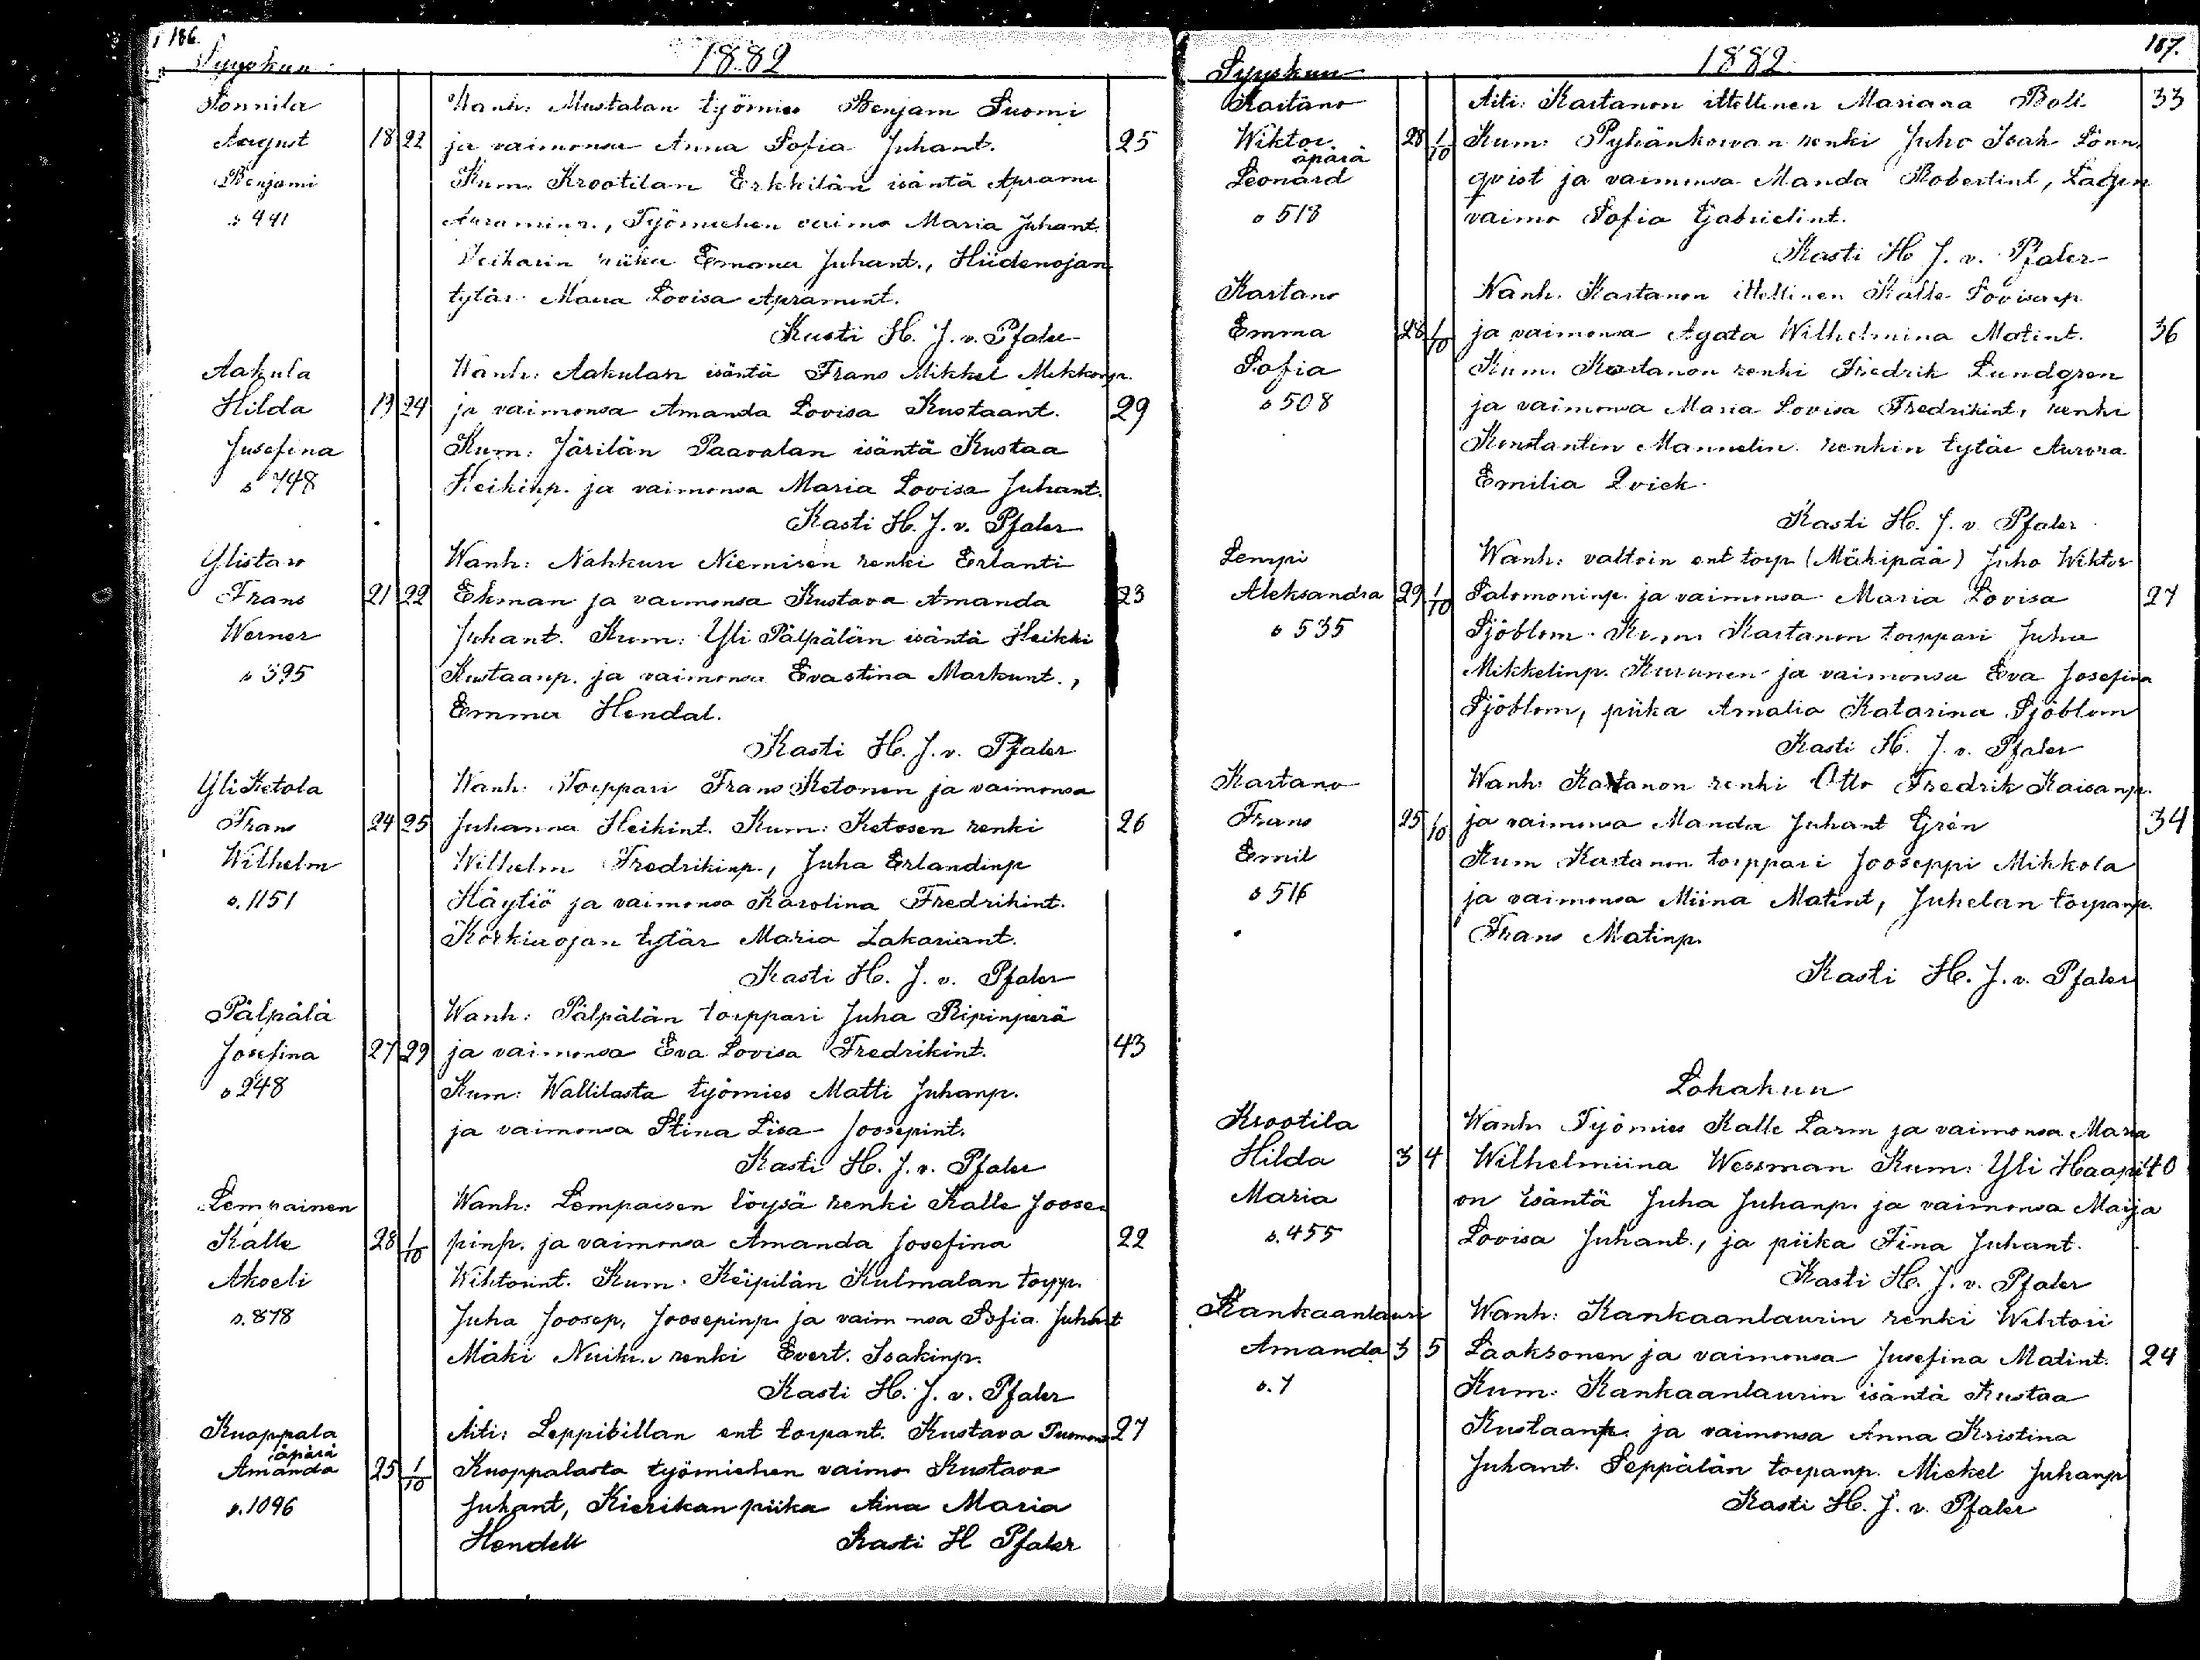 186.
Syyskuu
1882
Sonnila
Wanh: Mustalan työmies Benjam Suomi
August 18 22 ja vaimonsa Anna Sofia Juhant. 25
Benjami
Kum. Krootilan Erkkilän isäntä Apram
s 441
Työmiehen vaimo Maria Juhant.
piika Emma Juhant., Hiidenojan
tytär Maria Lovisa Apramint.
Kasti H. J. v. Pfaler
Aakula
Wanh: Aakulan isäntä Frans Mikkel Mikkonp.
Hilda 19 24 ja vaimonsa Amanda Lovisa Kustaant. 29
Jusefina
Kum: Järilän Paavalan isäntä Kustaa
s 748
Heikinp. ja vaimonsa Maria Lovisa Juhant.
Kasti H. J. v. Pfaler
Ylistaro
Wanh: Nahkuri Niemisen renki Erlanti
Frans 21 22 Ekman ja vaimonsa Kustava Amanda 23
Werner
Juhant. Kum: Yli Pälpälän isäntä Heikki
s 395
Kustaanp. ja vaimonsa Evastina Markunt.,
Emma Hendal.
Kasti H. J. v. Pfaler
Yli Ketola
Wanh: Torppari Frans Ketonen ja vaimonsa
Frans 24 25 Juhanna Heikint. Kum: Ketosen renki 26
Wilhelm
Wilhelm Fredrikinp., Juha Erlandinp
s. 1151
Häytiö ja vaimonsa Karolina Fredrikint.
Korkiaojan tytär Maria Zakariant.
Kasti H. J. v. Pfaler
Pälpälä
Wanh: Pälpälän torppari Juha Ripinperä
Josefina 27 29 ja vaimonsa Eva Lovisa Fredrikint. 43
s 248
Kum: Wallilasta työmies Matti Juhanp.
ja vaimonsa Stina Lisa Joosepint.
Kasti H. J. v. Pfaler
Lempainen
Wanh: Lempaisen löysä renki Kalle Joose-
Kalle 28 1/10 pinp. ja vaimonsa Amanda Josefina 22
Akseli
Wihtorint. Kum. Keipilän Kulmalan torpp.
s. 878
Juha Joosep, Joosepinp. ja vaimonsa Sofia Juhant
Mäki renki Evert. Isakinp.
Kasti H. J. v. Pfaler
Kuoppala
Äiti: Leppibillan ent torpant. Kustava 27
äpärä
Amanda 25 1/10 Kuoppalasta työmiehen vaimo Kustava
s. 1096
Juhant, Kierikan piika Aina Maria
Hendell Kasti H Pfaler
187.
Syyskuu
1882
Kartano
Äiti: Kartanon ittellinen Mariana Boll 33
Wiktor 28 1/10 Kum: Pyhänkorvan renki Juho Isak Lönn-
äpärä
Leonard
qvist ja vaimonsa Manda Robertint,
s 518
vaimo Sofia Gabrielint.
Kasti H J. v. Pfaler
Kartano
Wanh. Kartanon ittellinen Kalle Lovisanp.
Emma 28 1/10 ja vaimonsa Agata Wilhelmina Matint. 36
Sofia
Kum. Kartanon renki Fredrik Lundgren
s 508
ja vaimonsa Maria Lovisa Fredrikint, renki
Konstantin Mannelin renkin tytär Aurora
Emilia Qvick
Kasti H. J. v. Pfaler
Lempi
Wanh: valtoin ent torp (Mäkipää) Juho Wiktor
Aleksandra 29 1/10 Salomoninp. ja vaimonsa Maria Lovisa 27
s 535
Sjöblom. Kum. Kartanon torppari Juha
Mikkelinp. Kurunen ja vaimonsa Eva Josefina
Sjöblom, piika Amalia Katarina Sjöblom
Kasti H. J. v. Pfaler
Kartano
Wanh: Kartanon renki Otto Fredrik Kaisanp.
Frans 25 1/10 ja vaimonsa Manda Juhant Grén 34
Emil
Kum Kartanon torppari Jooseppi Mikkola
s 516
ja vaimonsa Miina Matint, Juhelan torpanp.
Frans Matinp.
Kasti H. J. v. Pfaler
Lokakuu
Krootila
Wanh. Työmies Kalle Larm ja vaimonsa Maria
Hilda 3 4 Wilhelmiina Wessman Kum: Yli Haapi- 40
Maria
on isäntä Juha Juhanp. ja vaimonsa Maija
s. 455
Lovisa Juhant., ja piika Fina Juhant.
Kasti H. J. v. Pfaler
Kankaanlauri
Wanh: Kankaanlaurin renki Wihtori
Amanda 3 5 Laaksonen ja vaimonsa Jusefina Matint. 24
s. 7
Kum: Kankaanlaurin isäntä Kustaa
Kustaanp. ja vaimonsa Anna Kristina
Juhant. Seppälän torpanp. Mickel Juhanp
Kasti H. J. v. Pfaler